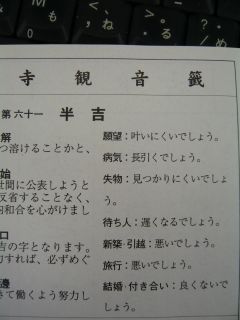 寺観音籤
第六十一 半吉
解
つ溶けることかと、
始
世間に公表しようと
反省することなく、
和合を心がけまし
口
吉の字となります。
すれば、必ずめぐ
邊
きて働くよう努力し
願望：叶いにくいでしょう。
病気：長引くでしょう。
失物：見つかりにくいでしょ
う。
待ち人：遅くなるでしょう。
新築・引越：悪いでしょう。
旅行：悪いでしょう。
結婚・付き合い：良くないで
しょう。